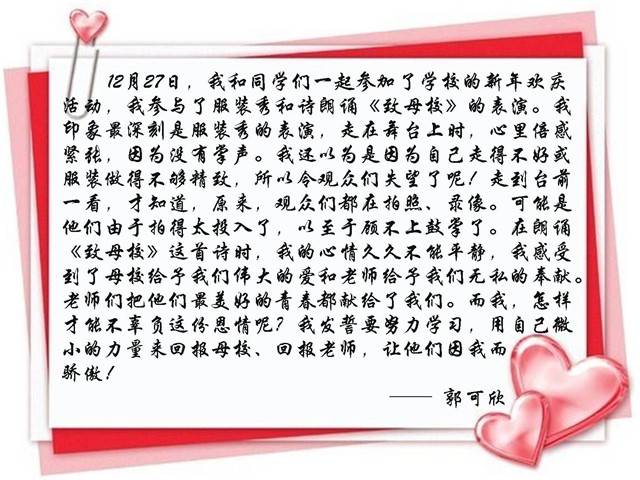 12月27日，我和同学们一起参加了学校的新年欢庆
活动，我参与了服装秀和诗朗诵《致母校》的表演。我
印象最深刻是服装秀的表演，走在舞台上时，心里倍感
紧张，因为没有掌声。我还以为是因为自己走得不好或
服装做得不够精致，所以令观众们失望了呢！走到台前
一看，才知道，原来，观众们都在拍照、录像。可能是
他们由于拍得太投入了，以至于顾不上鼓掌了。在朗诵
《致母校》这首诗时，我的心情久久不能平静，我感受
到了母校给予我们伟大的爱和老师给予我们无私的奉献。
老师们把他们最美好的青春都献给了我们。而我，怎样
才能不辜负这份恩情呢？我发誓要努力学习，用自己微
小的力量来回报母校、回报老师，让他们因我而
骄傲！
—— 郭可欣